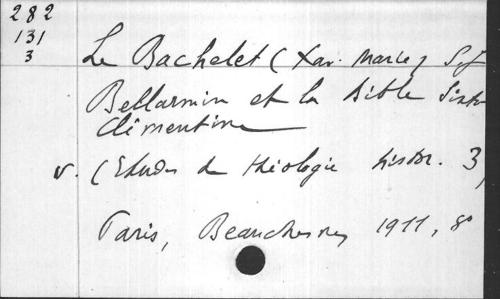 282
131
3
Le Bachelet (Xav. Marie) S.J
Bellarmin et la Bible Sixto
Clémentine
v. (Etudes de théologie histor. 3)
Paris, Beauchesne, 1911, 8°